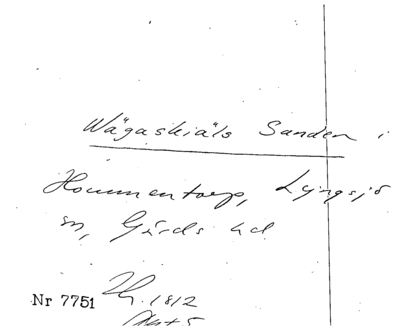 Wägaskiäls Sanden i
Hommentorp, Lyngsjö
sn, Gärds hd
Nr 7751
1812
Akt 5